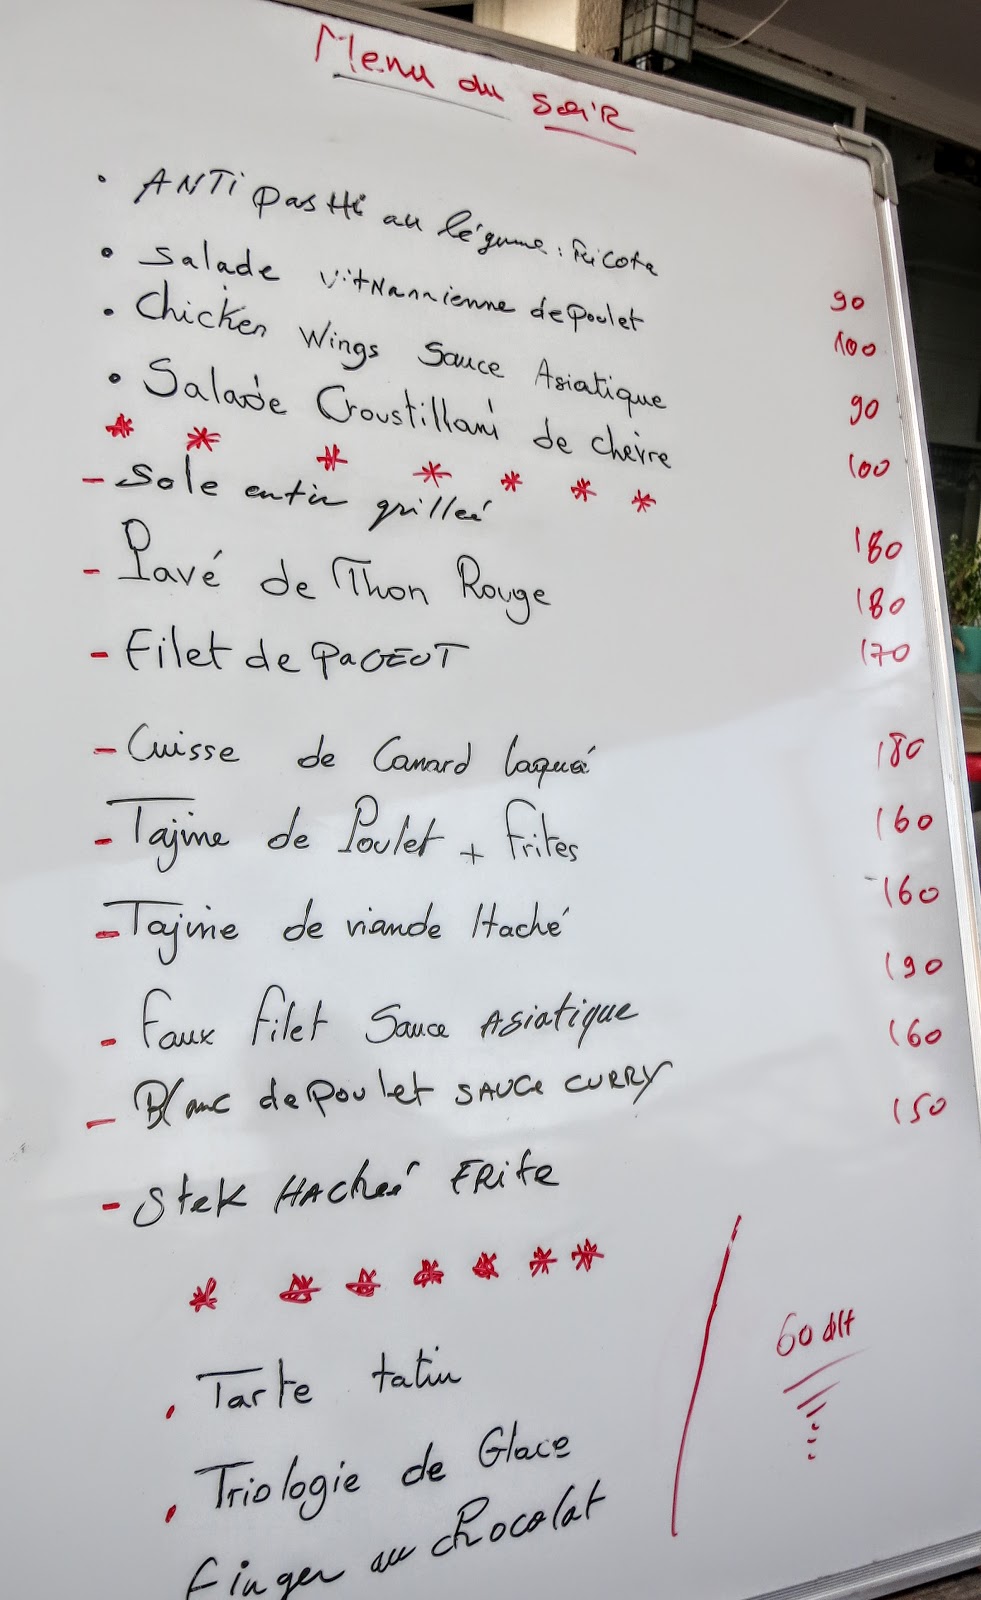 Menu du soiR
• ANTipastti au légume : Ricota 90
• Salade vitNannienne de poulet 100
• Chicken Wings Sauce Asiatique 90
• Salade Croustillant de chèvre 100
* * * * * * *
- Sole entir grilleé 180
- Pavé de Thon Rouge 180
- Filet de PAGEOT 170
- Cuisse de Canard laqué 180
- Tajine de Poulet + Frites 160
- Tajine de viande Haché 160
- Faux Filet Sauce Asiatique 190
- Blanc de poulet SAUCE CURRY 160
- Stek HAcheé FRite 150
* * * * * * *
. Tarte tatin
. Triologie de Glace
Finger au chocolat
60 dht